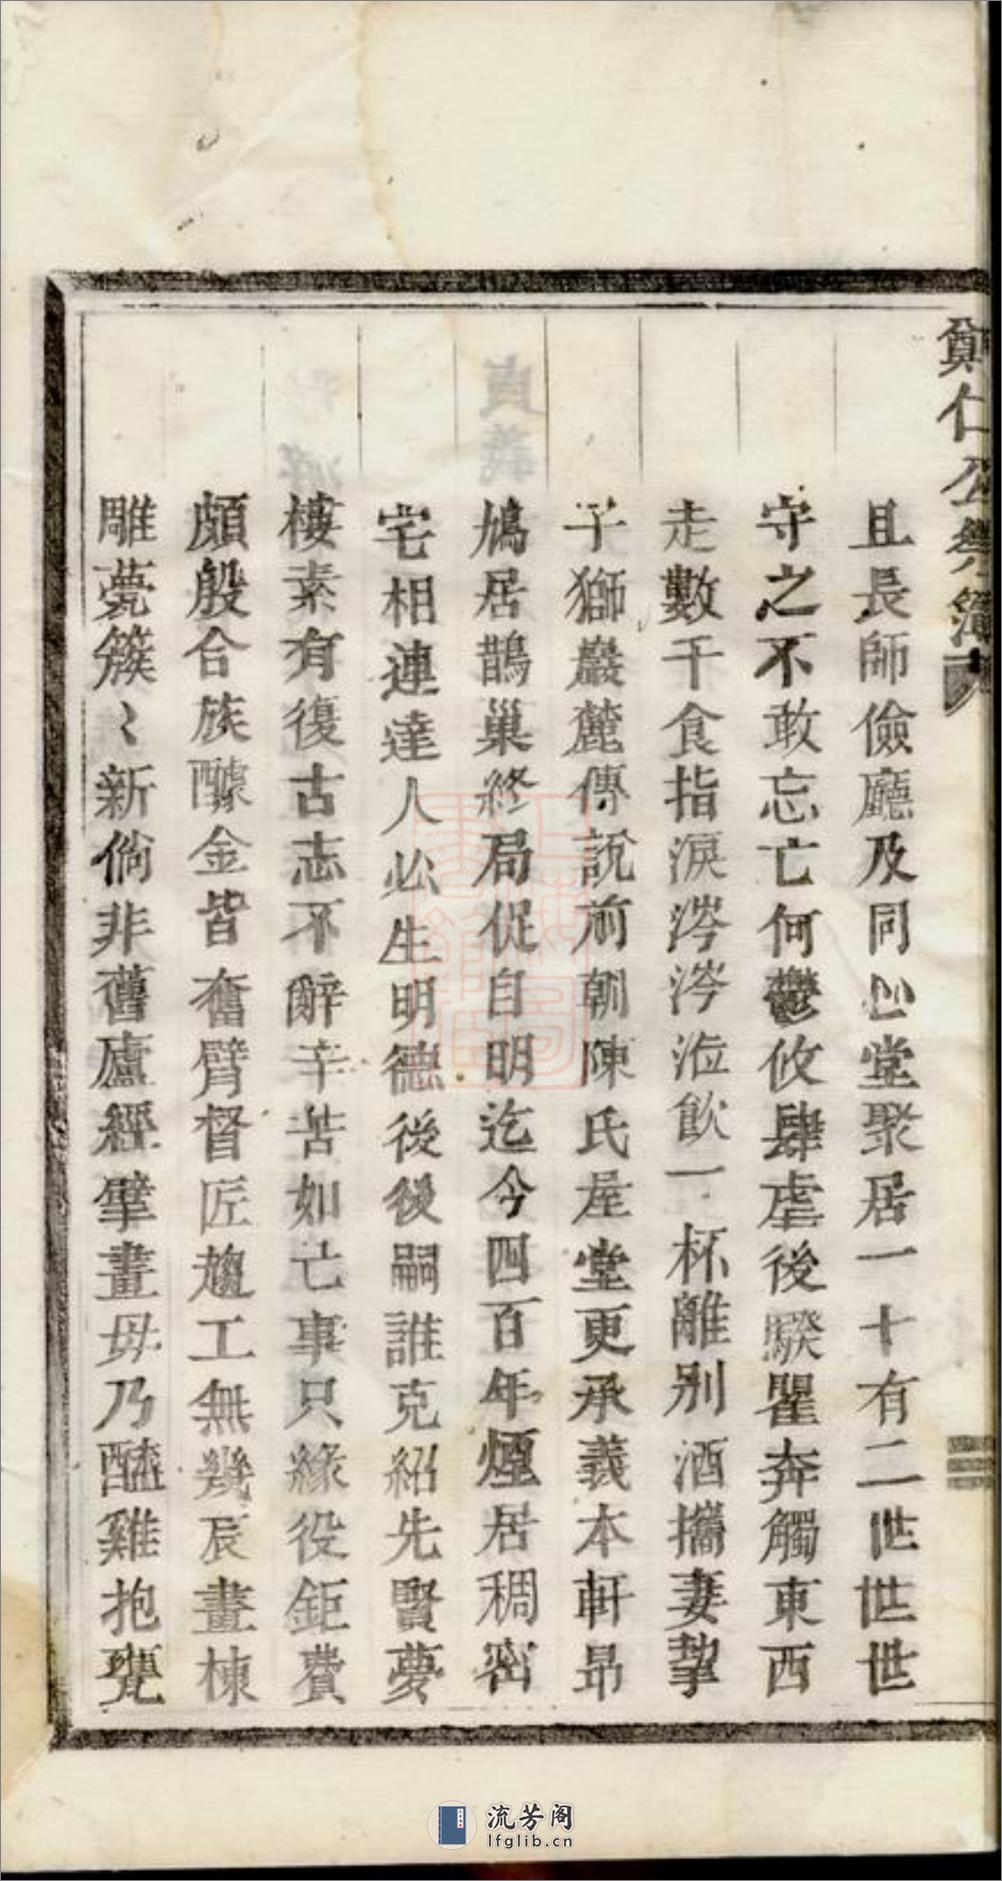 鄭仁公祭簿
且長師儉廳及同心堂聚居一十有二世世世
守之不敢忘亡何鬱攸肆虐後騤瞿奔觸東西
走數千食指淚涔涔泣飲一杯離別酒攜妻挈
子獅巖麓傳說前朝陳氏屋堂更承義本軒昂
鳩居鵲巢終局促自明迄今四百年煙居稠密
宅相連達人必生明德後後嗣誰克紹先賢夢
樓素有復古志不辭辛苦如亡事只緣役鉅費
頗殷合族醵金皆奮臂督匠趨工無幾辰畫棟
雕甍簇〻新倘非舊廬經擘畫毋乃醯雞抱甕
流芳阁
lfglib.cn